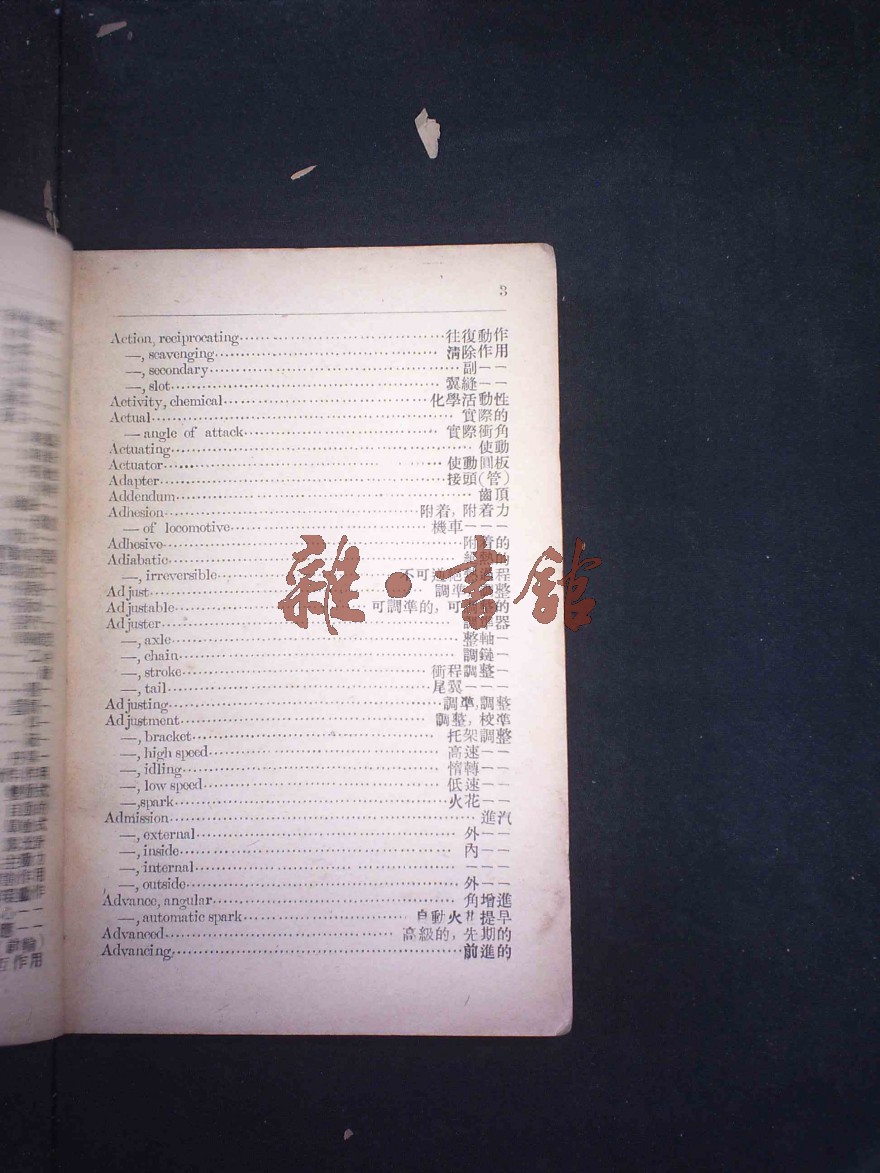 3
Action, reciprocating 往復動作
—, scavenging 清除作用
—, secondary 副——
—, slot 翼縫——
Activity, chemical 化學活動性
Actual 實際的
— angle of attack 實際衝角
Actuating 使動
Actuator 使動圓板
Adapter 接頭(管)
Addendum 齒頂
Adhesion 附着, 附着力
— of locomotive 機車———
Adhesive 附着的
Adiabatic 的
—, irreversible 不可逆絕熱過程
Adjust 調準, 調整
Adjustable 可調準的, 可調整的
Adjuster 調準器
—, axle 整軸—
—, chain 調鏈—
—, stroke 衝程調整—
—, tail 尾翼———
Adjusting 調準, 調整
Adjustment 調整, 校準
—, bracket 托架調整
—, high speed 高速——
—, idling 惰轉——
—, low speed 低速——
—, spark 火花——
Admission 進汽
—, external 外——
—, inside 內——
—, internal ———
—, outside 外——
Advance, angular 角增進
—, automatic spark 自動火花提早
Advanced 高級的, 先期的
Advancing 前進的
雜·書館